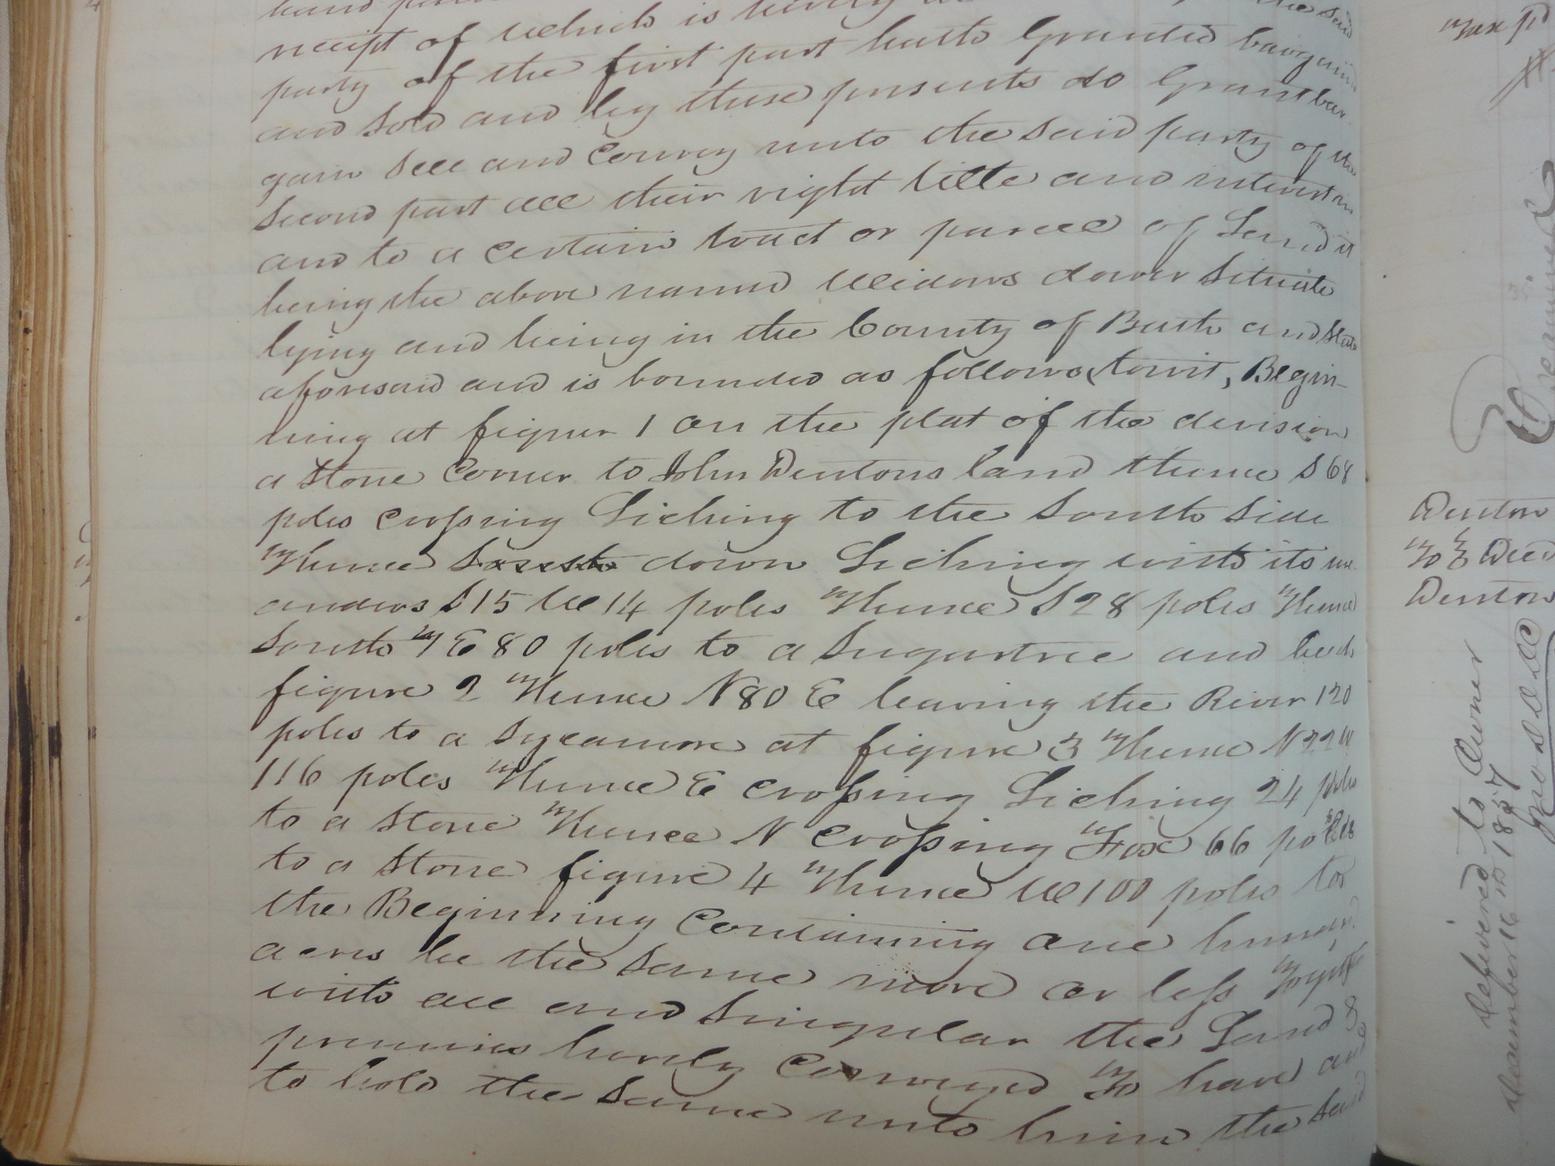 receipt of which is hereby
party of the first part hath Granted bargain
and sold and by these presents do Grant bar
gain sell and Convey unto the said party of the
second part all their right title and interest in
and to a certain tract or parcel of Land it
being the above named Widows dower Situate
lying and being in the County of Bath and State
aforesaid and is bounded as follows, towit, Begin-
ning at figure 1 on the plat of the devision
a Stone Corner to John Dentons land thence S 68
poles crossing Licking to the South Side
Thence down Licking with its me
anders S 15 W 14 poles Thence S 28 poles Thence
South E 80 poles to a Sugartree and
figure 2 Thence N 80 E leaving the River 120
poles to a Sycamore at figure 3 Thence N 22 W
116 poles Thence E crossing Licking 24 poles
to a Stone Thence N crossing Fox 66 poles
to a Stone figure 4 Thence W 100 poles to
the Beginning Containing one hundred
acres be the same more or less Together
with all and Singular the Land &
premises hereby Conveyed To have and
to hold the same unto him the said
Examined
Denton
To } Deed
Denton
delivered to Owner
December 16th 1857